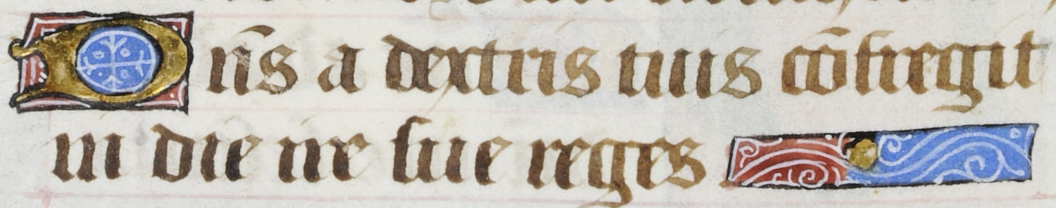 Dn̄s a dextris tuis cōfregit
in die ire sue reges